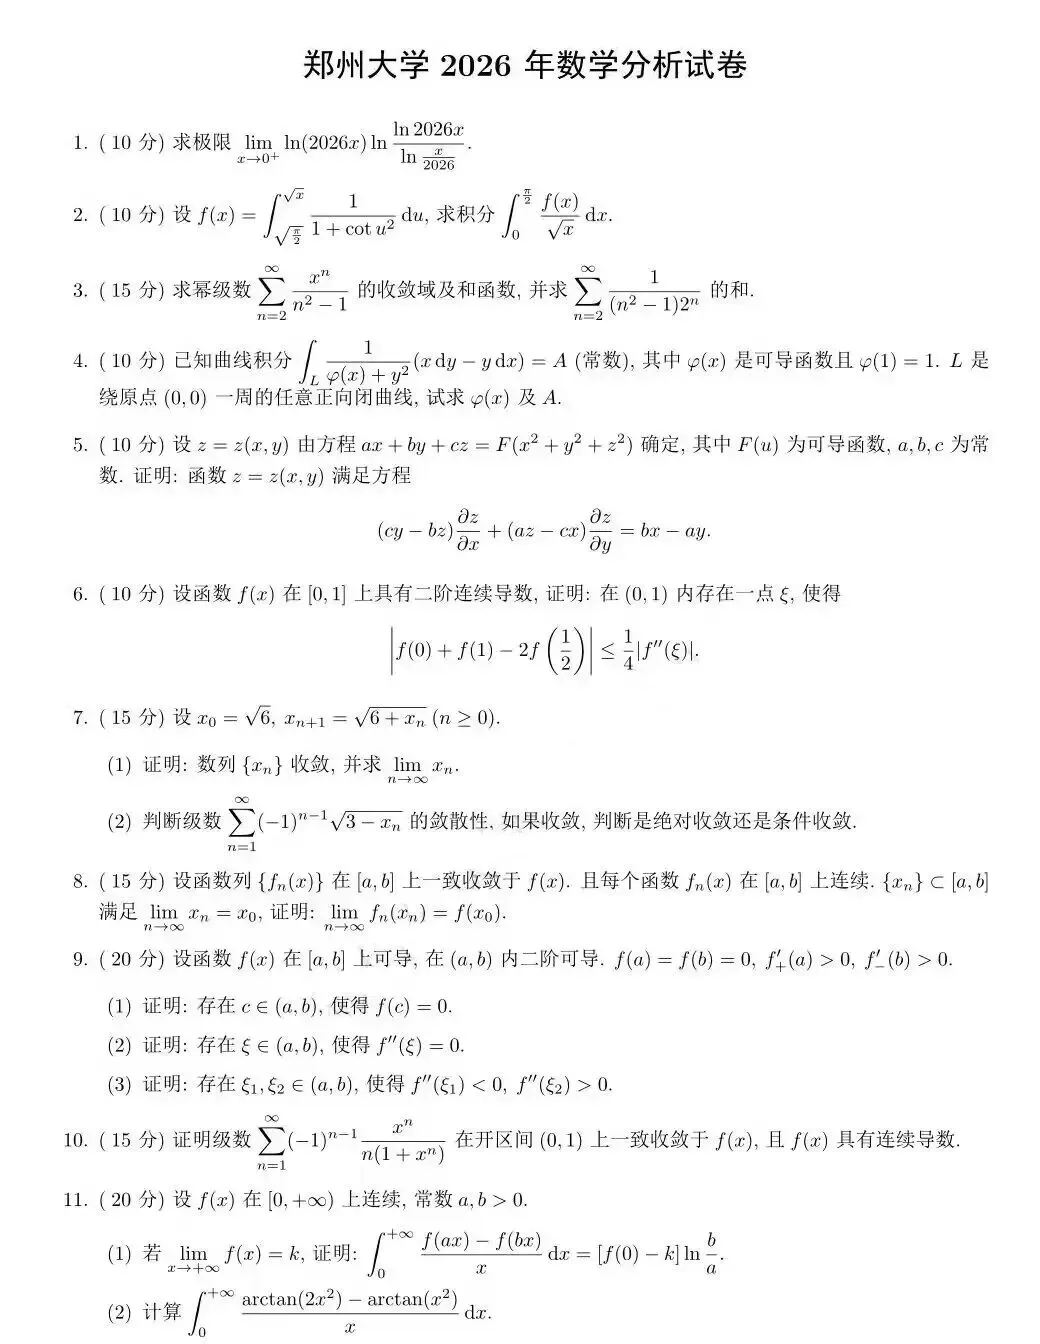 郑州大学 2026 年数学分析试卷
1. ( 10 分) 求极限 $\lim_{x\to 0^+} \ln(2026x) \ln \frac{\ln 2026x}{\ln \frac{x}{2026}}$.
2. ( 10 分) 设 $f(x) = \int_{\sqrt{\frac{\pi}{2}}}^{\sqrt{x}} \frac{1}{1+\cot u^2} \, \mathrm{d}u$, 求积分 $\int_0^{\frac{\pi}{2}} \frac{f(x)}{\sqrt{x}} \, \mathrm{d}x$.
3. ( 15 分) 求幂级数 $\sum_{n=2}^{\infty} \frac{x^n}{n^2-1}$ 的收敛域及和函数, 并求 $\sum_{n=2}^{\infty} \frac{1}{(n^2-1)2^n}$ 的和.
4. ( 10 分) 已知曲线积分 $\int_L \frac{1}{\varphi(x)+y^2}(x \, \mathrm{d}y - y \, \mathrm{d}x) = A$ (常数), 其中 $\varphi(x)$ 是可导函数且 $\varphi(1) = 1$. $L$ 是
绕原点 $(0,0)$ 一周的任意正向闭曲线, 试求 $\varphi(x)$ 及 $A$.
5. ( 10 分) 设 $z = z(x,y)$ 由方程 $ax + by + cz = F(x^2+y^2+z^2)$ 确定, 其中 $F(u)$ 为可导函数, $a,b,c$ 为常
数. 证明: 函数 $z = z(x,y)$ 满足方程
$(cy-bz)\frac{\partial z}{\partial x} + (az-cx)\frac{\partial z}{\partial y} = bx - ay.$
6. ( 10 分) 设函数 $f(x)$ 在 $[0,1]$ 上具有二阶连续导数, 证明: 在 $(0,1)$ 内存在一点 $\xi$, 使得
$\left| f(0) + f(1) - 2f\left(\frac{1}{2}\right) \right| \leq \frac{1}{4}|f''(\xi)|.$
7. ( 15 分) 设 $x_0 = \sqrt{6}$, $x_{n+1} = \sqrt{6+x_n}$ $(n \geq 0)$.
(1) 证明: 数列 $\{x_n\}$ 收敛, 并求 $\lim_{n\to\infty} x_n$.
(2) 判断级数 $\sum_{n=1}^{\infty} (-1)^{n-1}\sqrt{3-x_n}$ 的敛散性, 如果收敛, 判断是绝对收敛还是条件收敛.
8. ( 15 分) 设函数列 $\{f_n(x)\}$ 在 $[a,b]$ 上一致收敛于 $f(x)$. 且每个函数 $f_n(x)$ 在 $[a,b]$ 上连续. $\{x_n\} \subset [a,b]$
满足 $\lim_{n\to\infty} x_n = x_0$, 证明: $\lim_{n\to\infty} f_n(x_n) = f(x_0)$.
9. ( 20 分) 设函数 $f(x)$ 在 $[a,b]$ 上可导, 在 $(a,b)$ 内二阶可导. $f(a) = f(b) = 0$, $f'_+(a) > 0$, $f'_-(b) > 0$.
(1) 证明: 存在 $c \in (a,b)$, 使得 $f(c) = 0$.
(2) 证明: 存在 $\xi \in (a,b)$, 使得 $f''(\xi) = 0$.
(3) 证明: 存在 $\xi_1, \xi_2 \in (a,b)$, 使得 $f''(\xi_1) < 0$, $f''(\xi_2) > 0$.
10. ( 15 分) 证明级数 $\sum_{n=1}^{\infty} (-1)^{n-1} \frac{x^n}{n(1+x^n)}$ 在开区间 $(0,1)$ 上一致收敛于 $f(x)$, 且 $f(x)$ 具有连续导数.
11. ( 20 分) 设 $f(x)$ 在 $[0,+\infty)$ 上连续, 常数 $a,b > 0$.
(1) 若 $\lim_{x\to+\infty} f(x) = k$, 证明: $\int_0^{+\infty} \frac{f(ax)-f(bx)}{x} \, \mathrm{d}x = [f(0)-k] \ln \frac{b}{a}$.
(2) 计算 $\int_0^{+\infty} \frac{\arctan(2x^2) - \arctan(x^2)}{x} \, \mathrm{d}x$.